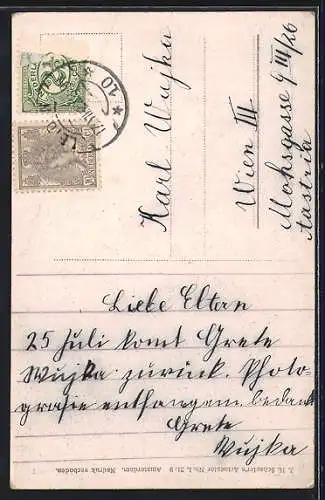 Karl Wujka
Wien III
Mohsgasse 9 III/26
Austria
Liebe Eltan
25 Juli komt Grete
Wujka zurück. Photo-
grafie enthangem. bedank
Grete
Wujka
J. H. Schaefer's
Amsterdam. Nadruk verboden.